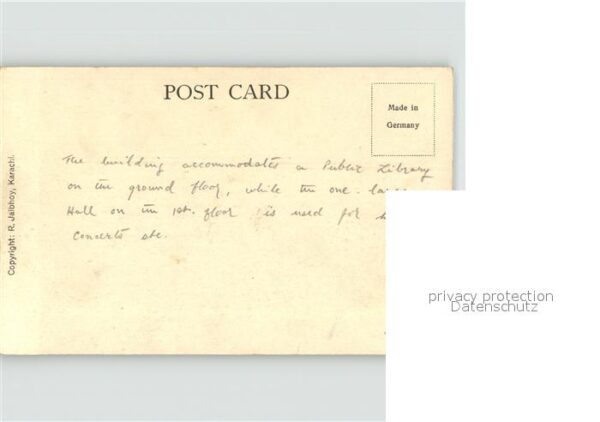 POST CARD
Made in
Germany
The building accommodates a Public Library
on the ground floor, while the one large
Hall on the 1st. floor is used for
Concerts etc.
Copyright: R. Jalbhoy, Karachi.
privacy protection
Datenschutz